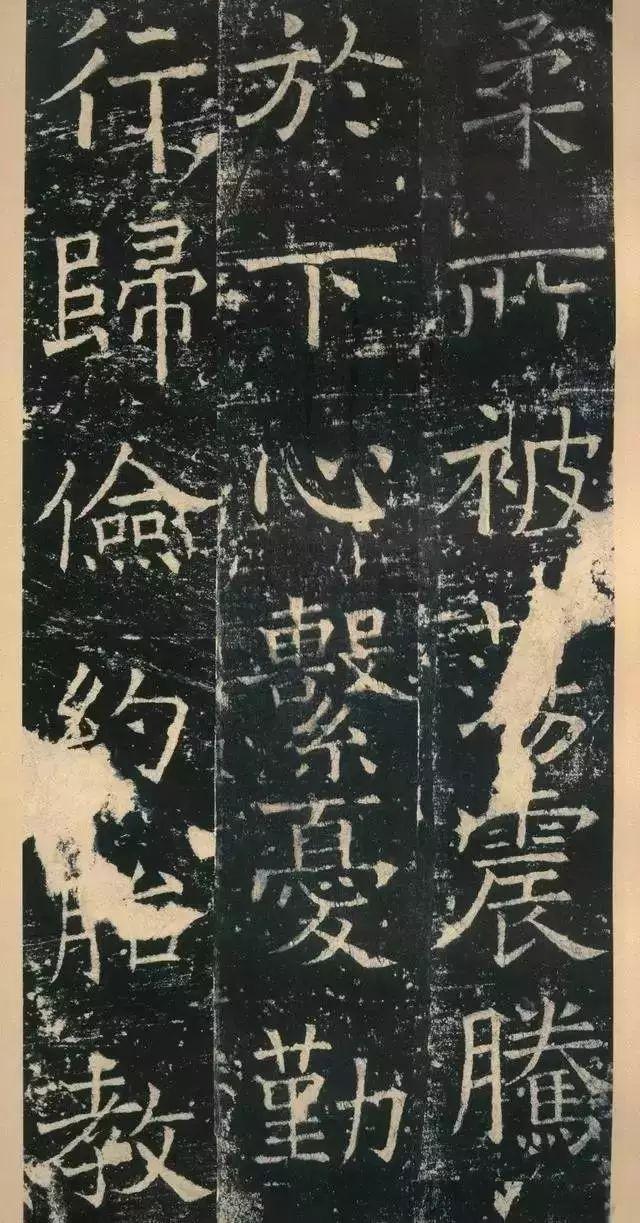 柔所被蕩震騰
於下心繫憂勤
行歸儉約胎教